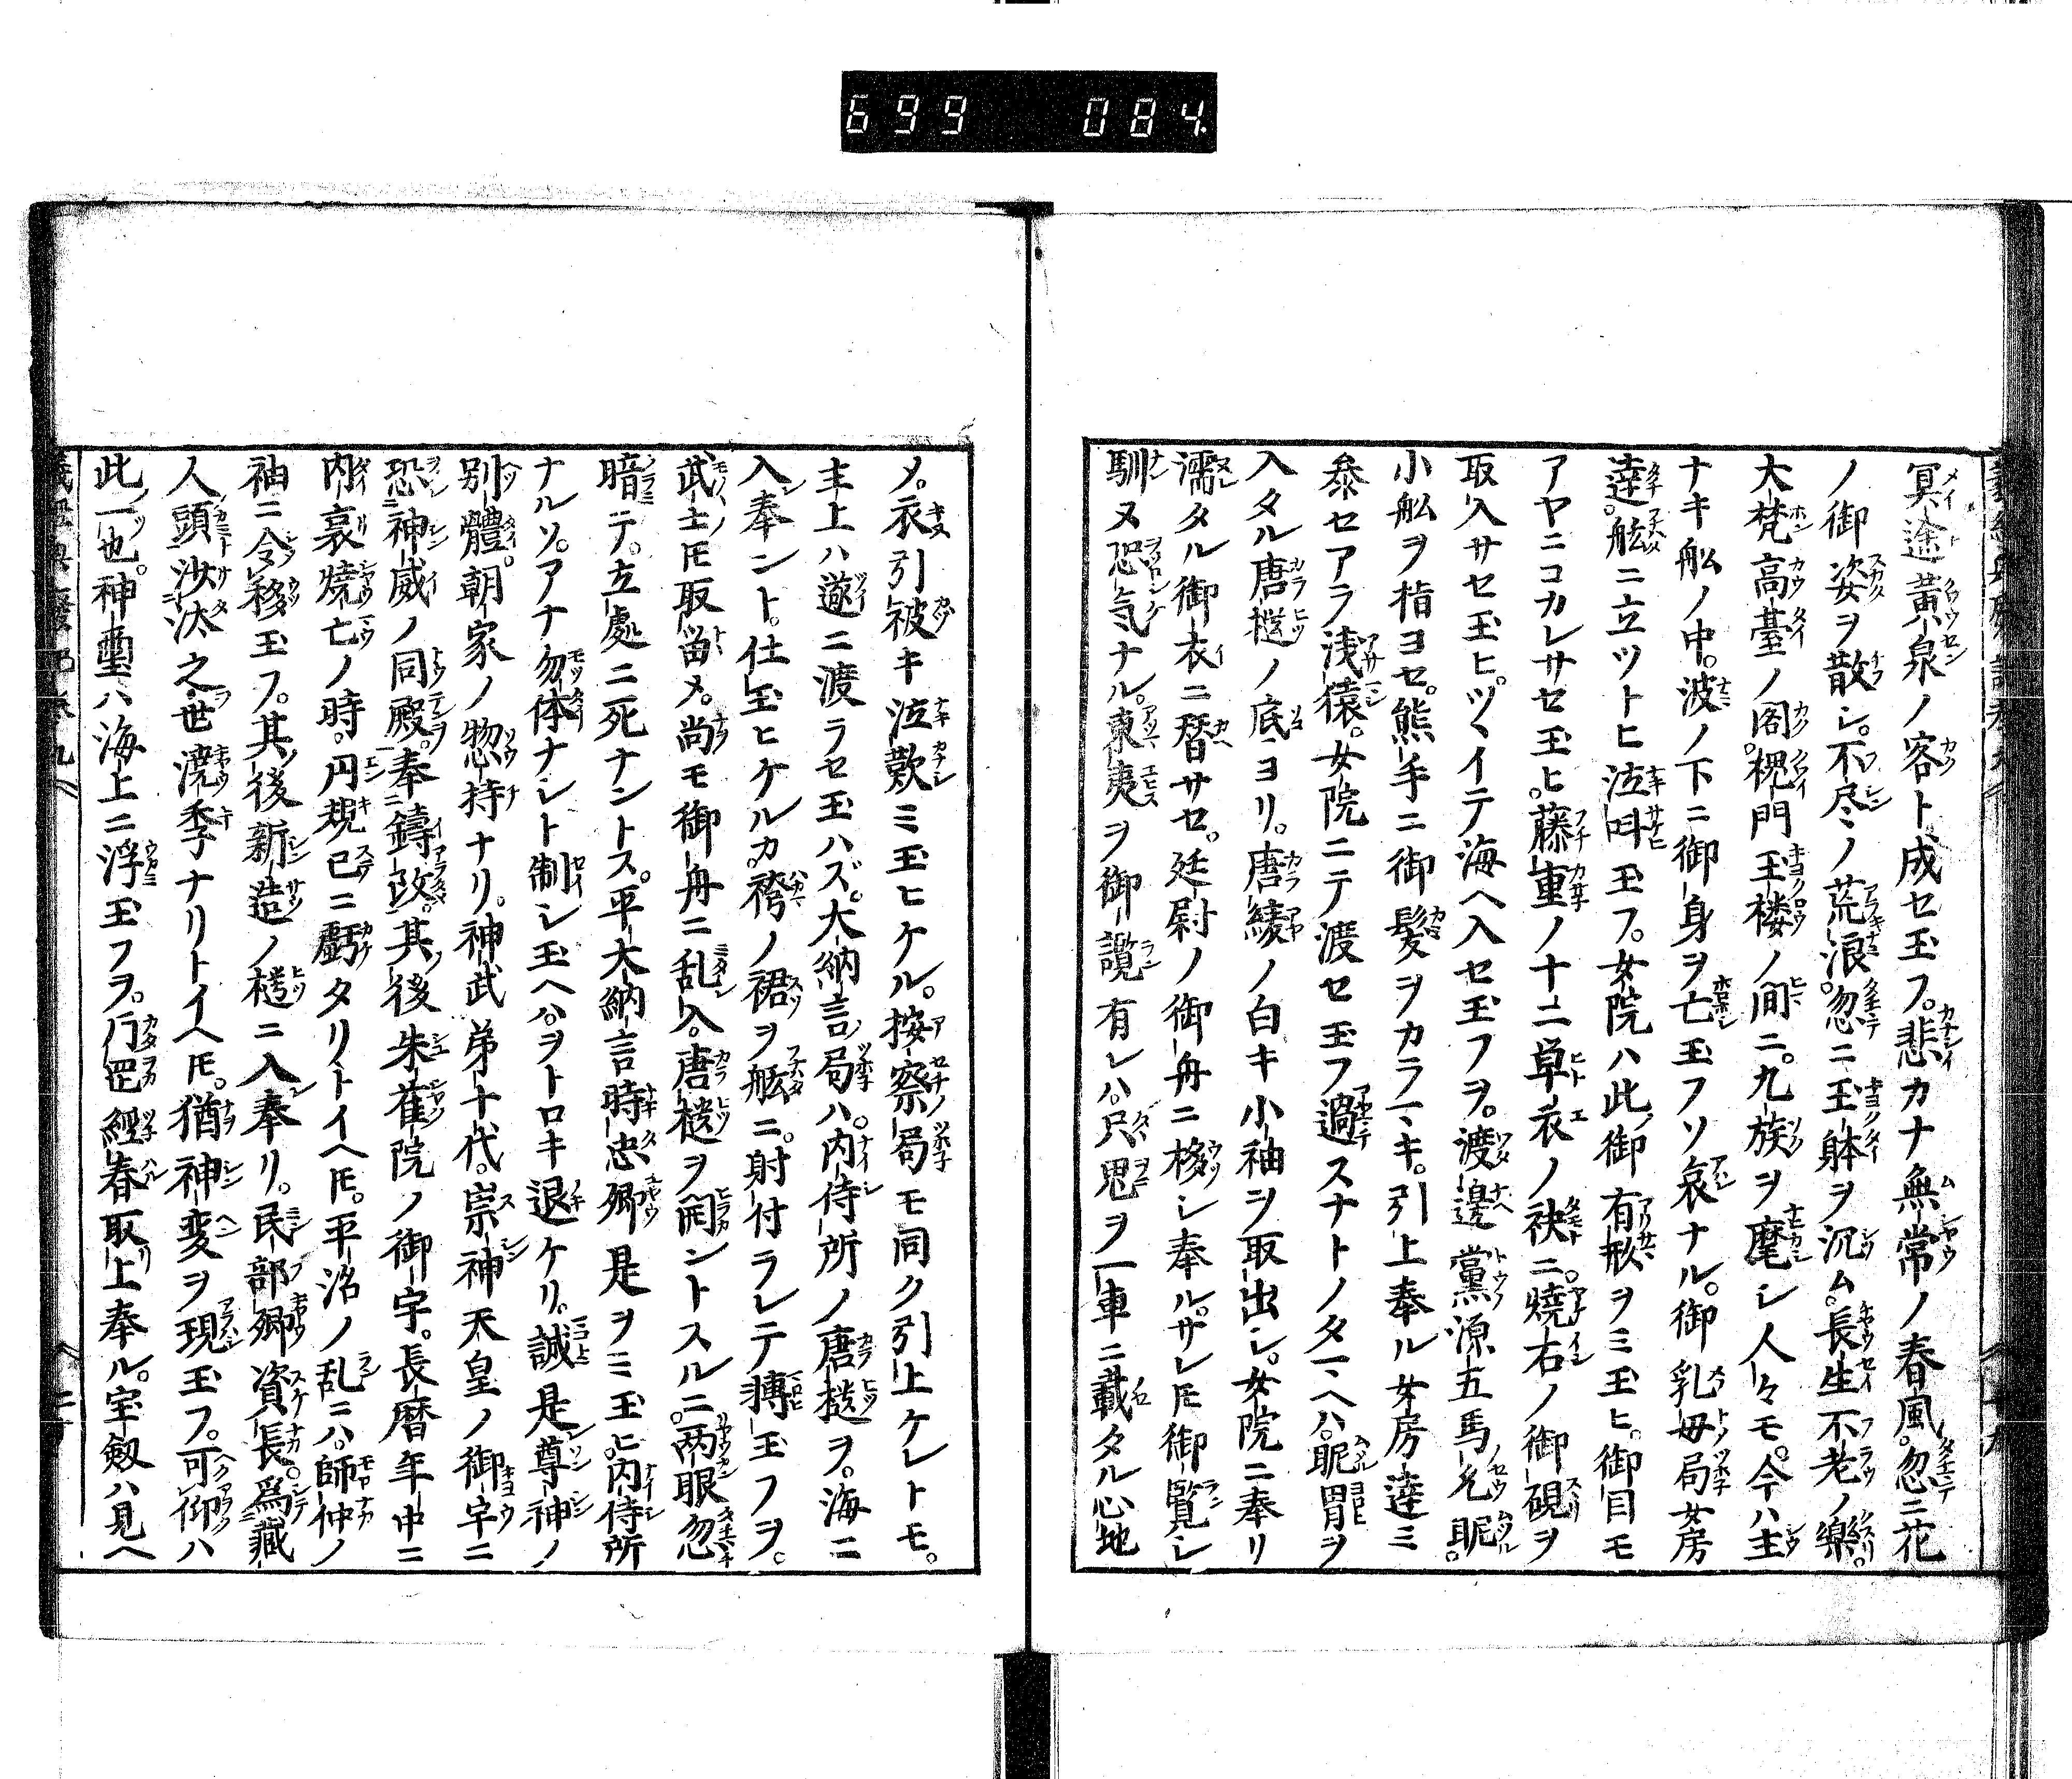 699 084
冥途黄泉ノ客ト成セ玉フ。悲カナ無常ノ春風。忽ニ花
ノ御姿ヲ散シ。不尽ノ荒浪。忽ニ玉躰ヲ沉ム。長生不老ノ樂。
大梵高臺ノ閣。槐門玉楼ノ間ニ。九族ヲ麾シ人々モ。今ハ主
ナキ舩ノ中。波ノ下ニ御身ヲ亡玉フソ哀ナル。御乳母局女房
達。舷ニ立ツトヒ泣呌玉フ。女院ハ此御有形ヲミ玉ヒ。御目モ
アヤニコカレサセ玉ヒ。藤重ノ十二単衣ノ袂ニ。燒右ノ御硯ヲ
取入サセ玉ヒ。ツヽイテ海ヘ入セ玉フヲ。渡邊黨源五馬允眤。
小舩ヲ指ヨセ。熊手ニ御髪ヲカラマキ。引上奉ル女房達ミ
参セアラ浅猿。女院ニテ渡セ玉フ過スナトノタマヘハ。眤胃ヲ
入タル唐櫃ノ底ヨリ。唐綾ノ白キ小袖ヲ取出シ。女院ニ奉リ
濡タル御衣ニ替サセ。廷尉ノ御舟ニ移シ奉ル。サレ𪜈御覧シ
馴ヌ恐気ナル。東夷ヲ御覧有レハ。只鬼ヲ一車ニ載タル心地
メ。衣引被キ泣歎ミ玉ヒケル。按察局モ同ク引上ケレトモ。
主上ハ遂ニ渡ラセ玉ハズ。大納言局ハ。内侍所ノ唐櫃ヲ。海ニ
入奉ント。仕玉ヒケルカ。袴ノ裾ヲ舷ニ。射付ラレテ轉玉フヲ。
武士𪜈取畄メ。尚モ御舟ニ乱入。唐櫃ヲ開ントスルニ。両眼忽
暗テ。立處ニ死ナントス。平大納言時忠卿是ヲミ玉ヒ。内侍所
ナルソ。アナ勿体ナシト制シ玉ヘハ。ヲトロキ退ケリ。誠是尊神ノ
別體。朝家ノ惣持ナリ。神武弟十代。崇神天皇ノ御宇ニ
恐神威ノ同殿。奉鑄改。其後朱雀院ノ御宇。長暦年中ニ
内哀燒亡ノ時。円規已ニ虧タリトイヘ𪜈。平治ノ乱ニハ。師仲ノ
袖ニ令移玉フ。其後新造ノ櫃ニ入奉リ。民部卿資長。爲藏
人頭沙汰之。世澆季ナリトイヘ𪜈。猶神変ヲ現玉フ。可仰ハ
此一也。神璽ハ海上ニ浮玉フヲ。片罡經春取上奉ル。宝劔ハ見ヘ